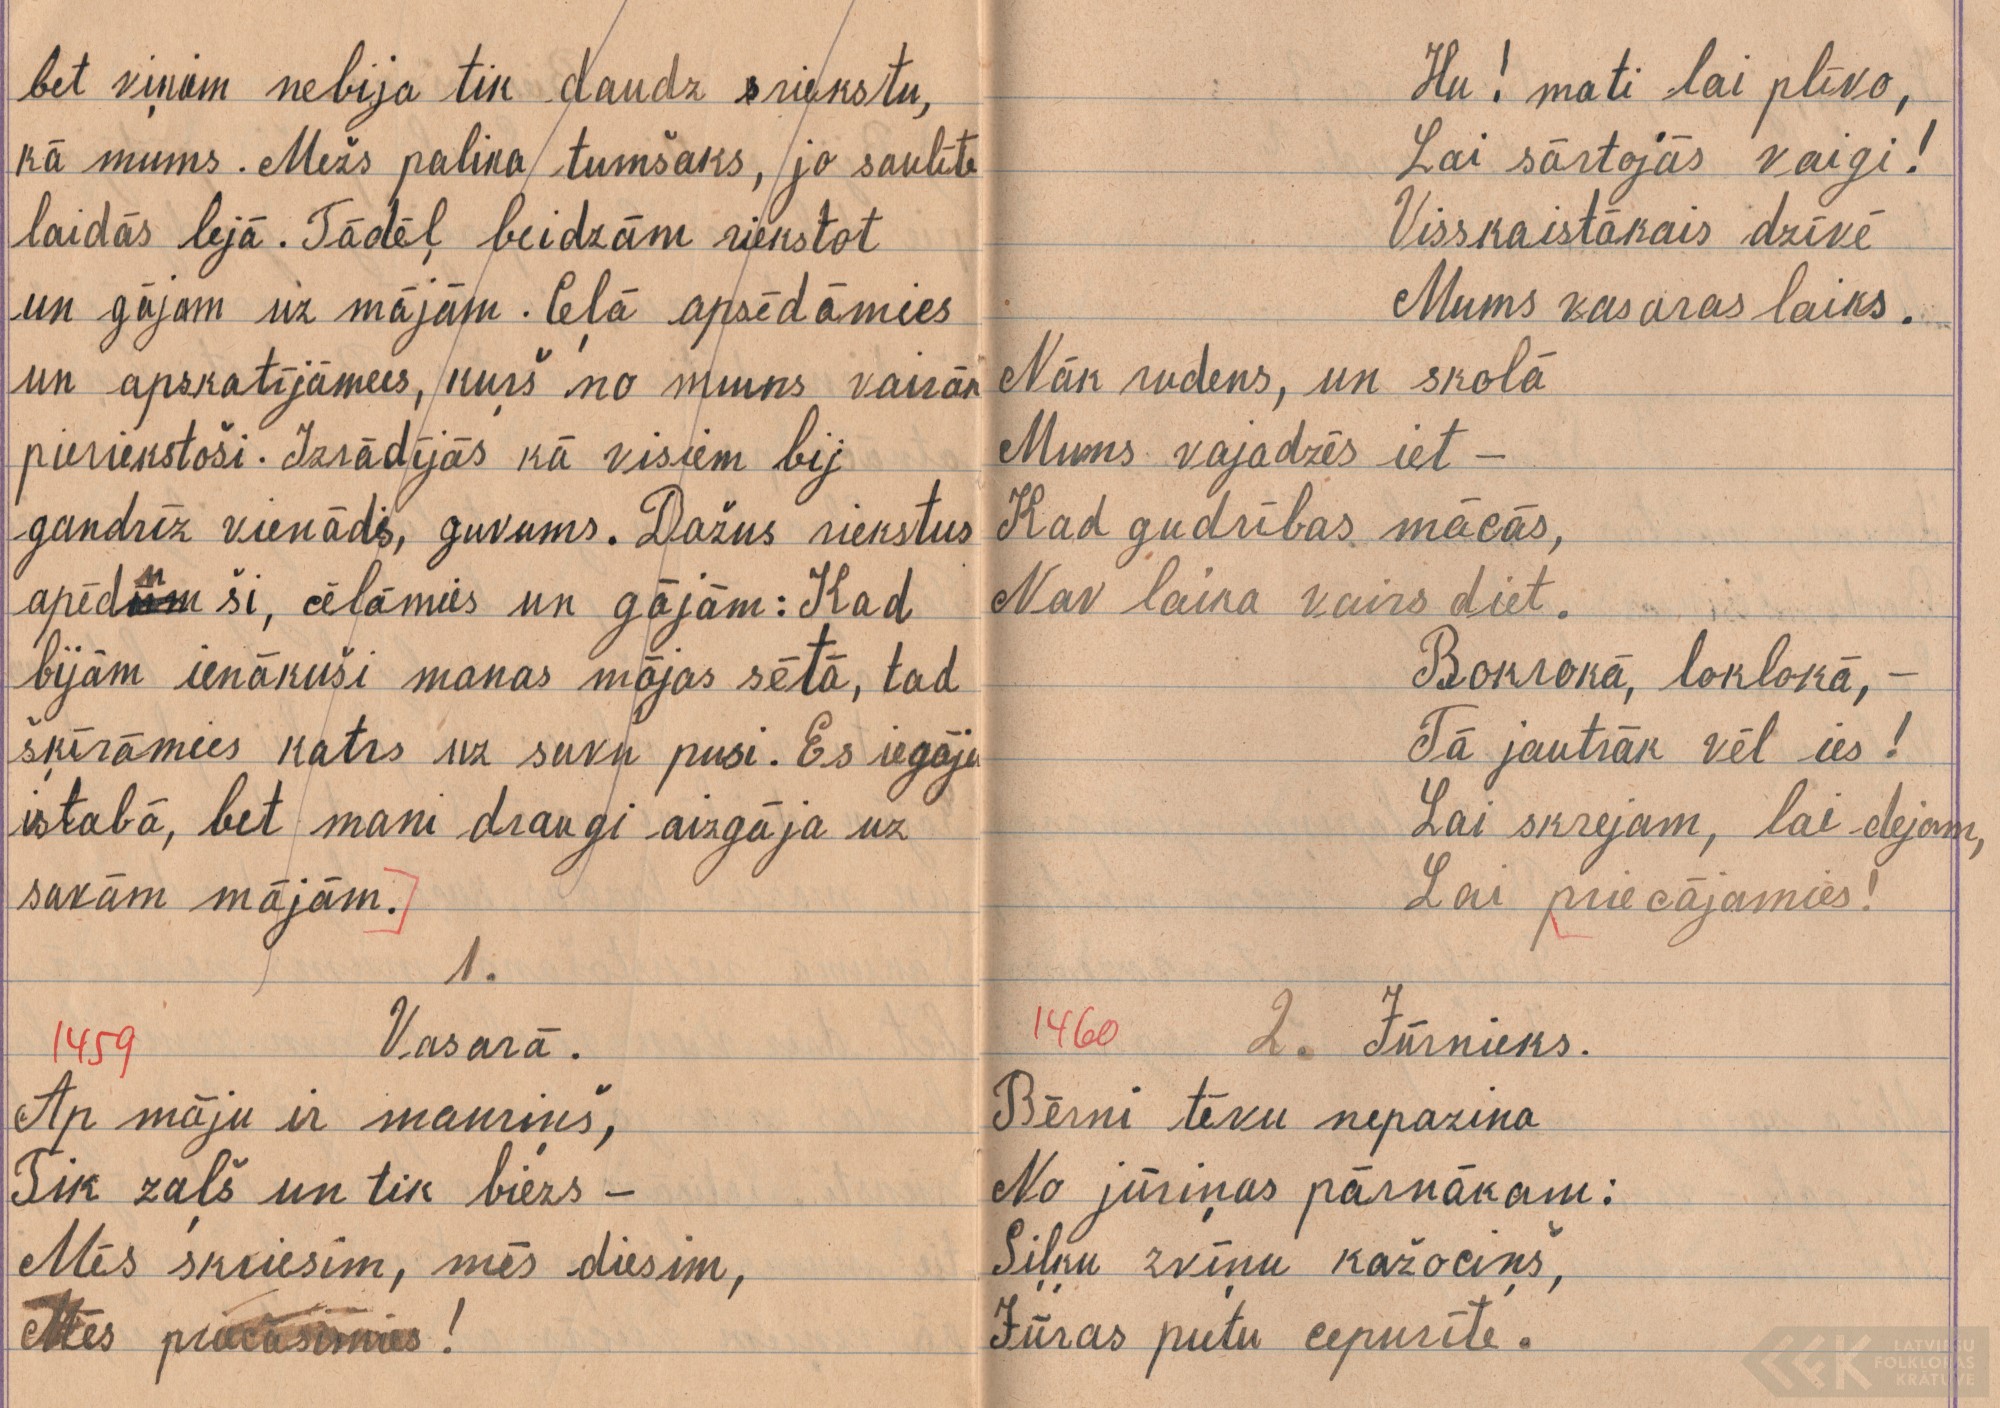 bet viņam nebija tik daudz riekstu,
kā mums. Mežs palika tumšaks, jo saulīte
laidās lejā. Tādēļ beidzām riekstot
un gājam uz mājām. Ceļā apsēdāmies
un apskatījāmees, kuŗš no mums vairāk
pieriekstoši. Izrādījās kā visiem bij
gandrīz vienāds, guvums. Dažus riekstus
apēduši, cēlāmies un gājām: Kad
bijām ienākuši manas mājas sētā, tad
šķīrāmies katrs uz savu pusi. Es iegāju
istabā, bet mani draugi aizgāja uz
savām mājām.]
1.
1459 Vasarā.
Ap māju ir mauriņš,
Tik zaļš un tik biezs –
Mēs skriesim, mēs diesim,
Mēs priecāsimies!
Hu! mati lai plīvo,
Lai sārtojās vaigi!
Visskaistākais dzīvē
Mums vasaras laiks.
Nāk rudens, un skolā
Mums vajadzēs iet –
Kad gudrības mācās,
Nav laika vairs diet.
Rokrokā, loklokā, –
Tā jautrāk vēl ies!
Lai skrejam, lai dejam,
Lai priecājamies!
1460 2. Jūrnieks.
Bērni tēvu nepazina
No jūriņas pārnākam:
Siļķu zvīņu kažociņš,
Jūras putu cepurīte.
LATVIEŠU
FOLKLORAS
KRĀTUVE